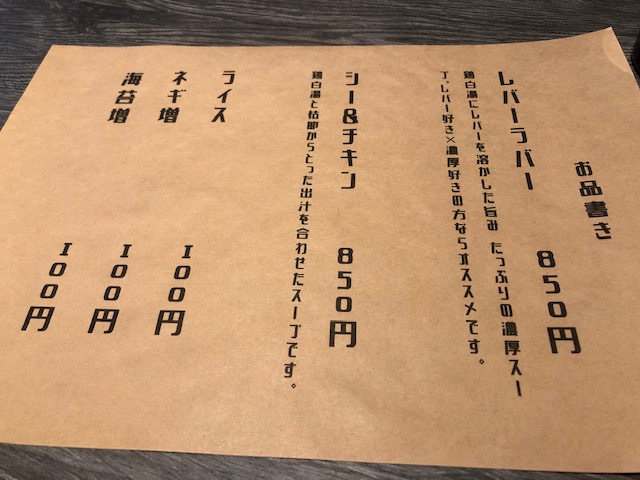 お品書き
レバーラバー 850円
鶏白湯にレバーを溶かした旨み たっぷりの濃厚スー
プ。レバー好き×濃厚好きの方ならオススメです。
シー&チキン 850円
鶏白湯と枯節からとった出汁を合わせたスープです。
ライス 100円
ネギ増 100円
海苔増 100円